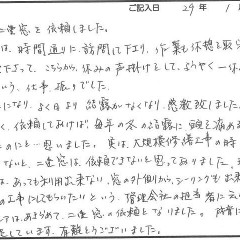 ご記入日 29年 1
二重窓を依頼しました。
は、時間通りに訪問して下さり、作業も休憩を取ら
て下さって、こちらから、休みの声掛けをして、ようやく一休
いう、仕事振りでした。
になり、よく日より結露がなくなり、感激致しました
く、依頼しておけば毎年の冬の結露に頭を痛める
のにと…思いました。実は、大規模修繕工事の時
ないと、二重窓は、依頼できないと思っておりました。
は、あっても利用出来ない、窓の外側から、シーリングも出来
の工事にしてもらいたいという、管理会社の担当者に云い
アは、あきらめて、二重窓の依頼となりました。
しています。有難うございました。